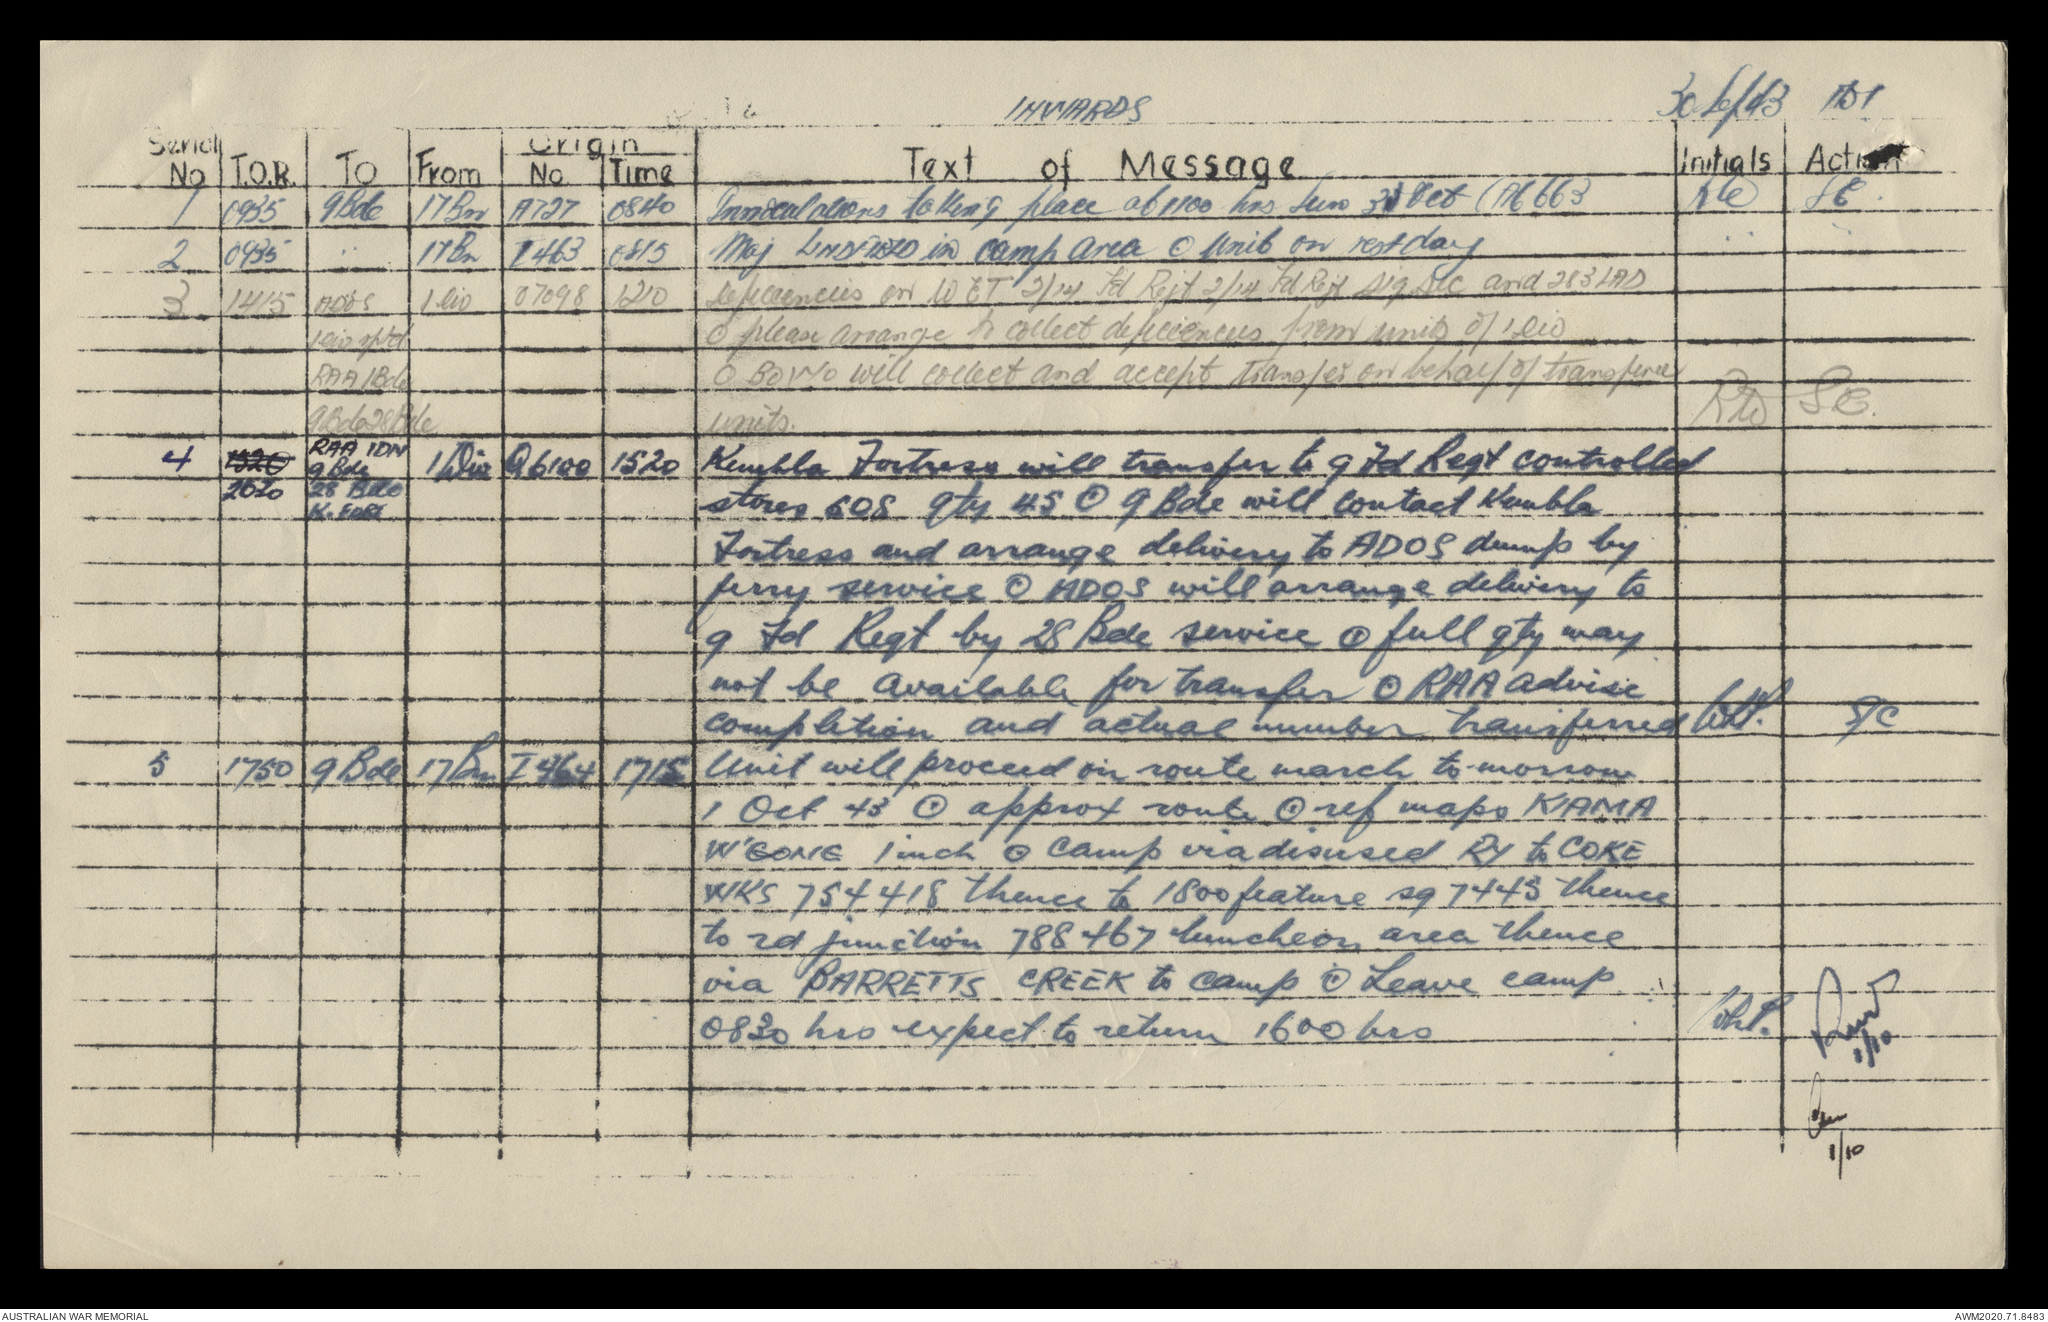 INWARDS 30 Sep 43
Serial No T.O.R. TO From Origin No. Time Text of Message Initials Action
1 0935 9 Bde 17 Bn A727 0840 Innoculations taking place at 1100 hrs Sun 3 Oct (A6663 SC.
2 0935 " 17 Bn I463 0815 Maj in camp area ⊙ Unit on rest day " "
3 1415 ADOS 1 Div 07098 1210 Deficiencies on WET 2/14 Fd Regt 2/14 Fd Regt Sig Sec and 283 LAD
1 Div ⊙ please arrange to collect deficiencies from units of 1 Div
RAA 1 Bde ⊙ BOWO will collect and accept transfer on behalf of transferee
9 Bde 28 Bde units. SC.
4 1520 RAA 1DN 1 Div Q6100 1520 Kembla Fortress will transfer to 9 Fd Regt controlled
2020 9 Bde 28 Bde K. Fort stores 608 qty 45 ⊙ 9 Bde will contact Kembla
Fortress and arrange delivery to ADOS dump by
ferry service ⊙ ADOS will arrange delivery to
9 Fd Regt by 28 Bde service ⊙ full qty may
not be available for transfer ⊙ RAA advise
completion and actual number transferred S/C
5 1750 9 Bde 17 Bn I 464 1715 Unit will proceed on route march to-morrow
1 Oct 43 ⊙ approx route ⊙ ref maps KIAMA
W'GONG 1 inch ⊙ Camp via disused RY to COKE
WKS 754418 thence to 1800 feature sq 7445 thence
to rd junction 788467 luncheon area thence
via BARRETTS CREEK to camp ⊙ Leave camp
0830 hrs expect to return 1600 hrs
1/10
1/10
AUSTRALIAN WAR MEMORIAL AWM2020.71.8483